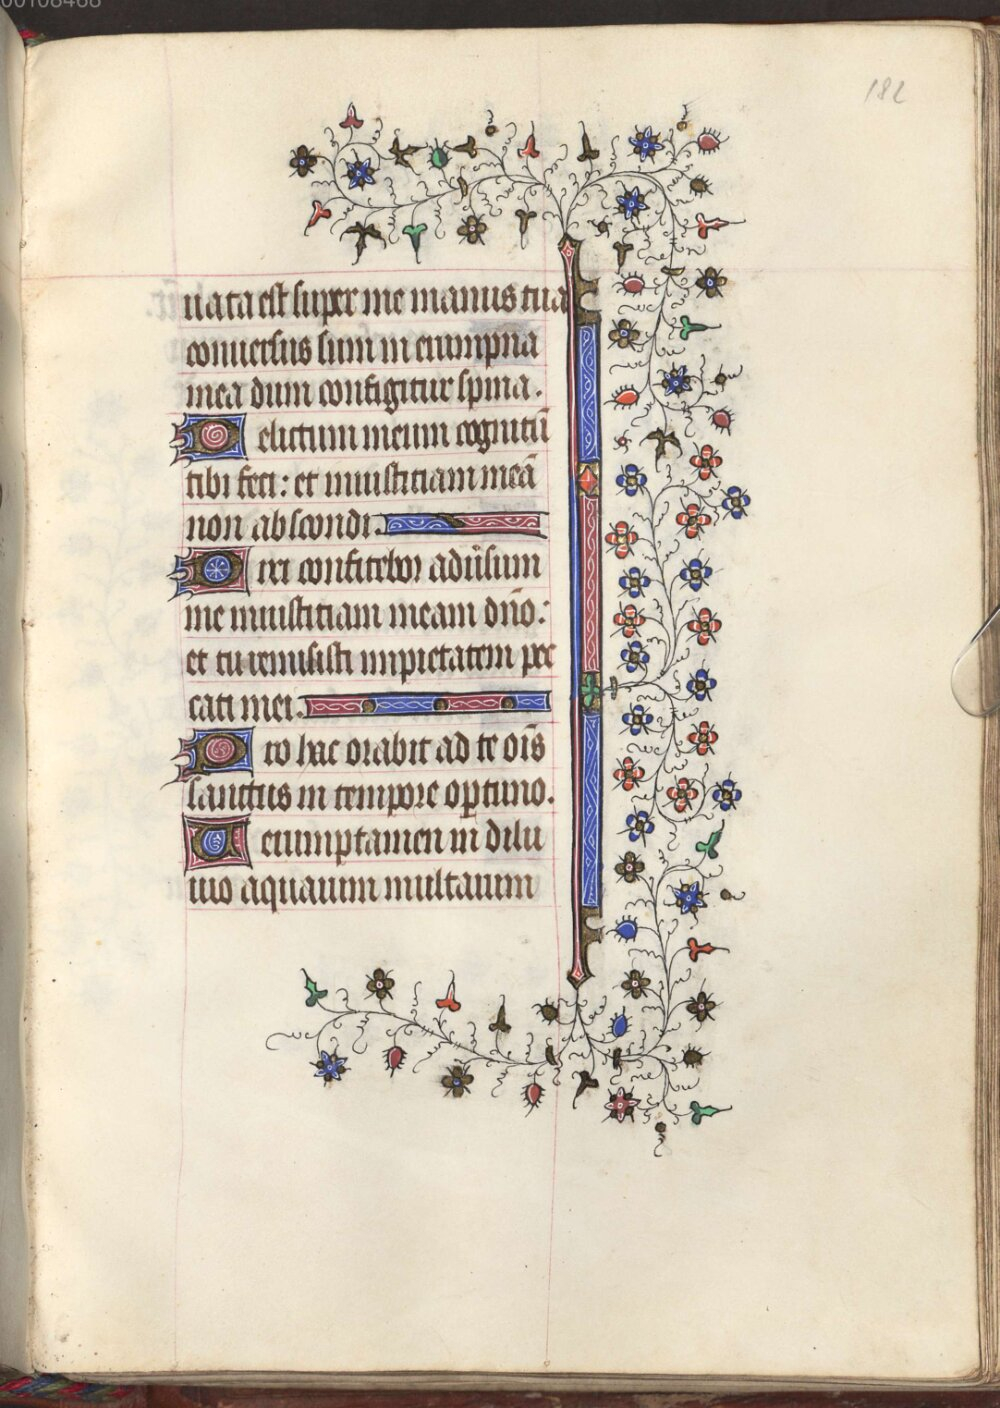 00108468
182
uata est super me manus tua
conuersus sum in erumpna
mea dum configitur spina.
Delictum meum cognitū
tibi feci: et iniusticiam meā
non abscondi.
Dixi confitebor aduˀsum
me iniusticiam meam dn̄o:
et tu remisisti impietatem pec
cati mei.
Pro hac orabit ad te oīs
sanctus in tempore oꝑtuno.
Uerumptamen in dilu
uio aquarum multarum